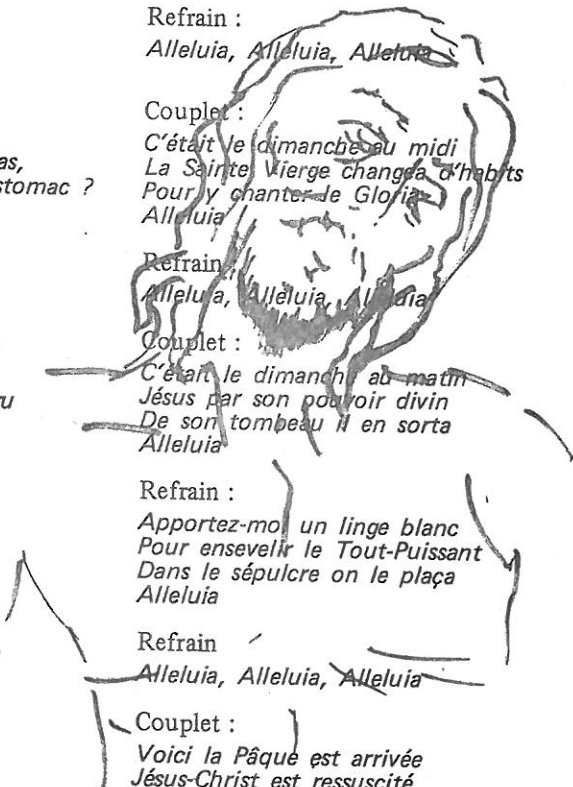 as,
stomac ?
u
Refrain :
Alleluia, Alleluia, Alleluia
Couplet :
C'était le dimanche au midi
La Sainte Vierge changea d'habits
Pour y chanter le Gloria
Alleluia
Refrain :
Alleluia, Alleluia, Alleluia
Couplet :
C'était le dimanche au matin
Jésus par son pouvoir divin
De son tombeau il en sorta
Alleluia
Refrain :
Apportez-moi un linge blanc
Pour ensevelir le Tout-Puissant
Dans le sépulcre on le plaça
Alleluia
Refrain
Alleluia, Alleluia, Alleluia
Couplet :
Voici la Pâque est arrivée
Jésus-Christ est ressuscité